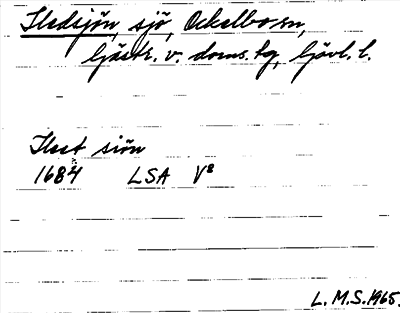 Iledsjön, sjö, Ockelbo sn,
Gästr. v. doms. hg, Gävl. l.
Ilest siön
1684 LSA V⁸
L.M.S. 1965.